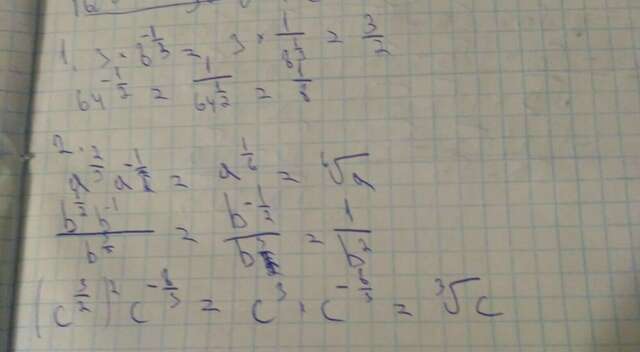 1. 3 · 8^{-1/3} = 3 · 1/8^{1/3} = 3/2
64^{-1/2} = 1/64^{1/2} = 1/8
2.
a^{2/3} a^{-1/2} = a^{1/6} = ⁶√a
b^{1/2} b^{-1} / b^{3/2} = b^{-1/2} / b^{3/2} = 1/b^2
(c^{3/2})^2 c^{-8/3} = c^3 · c^{-8/3} = ³√c